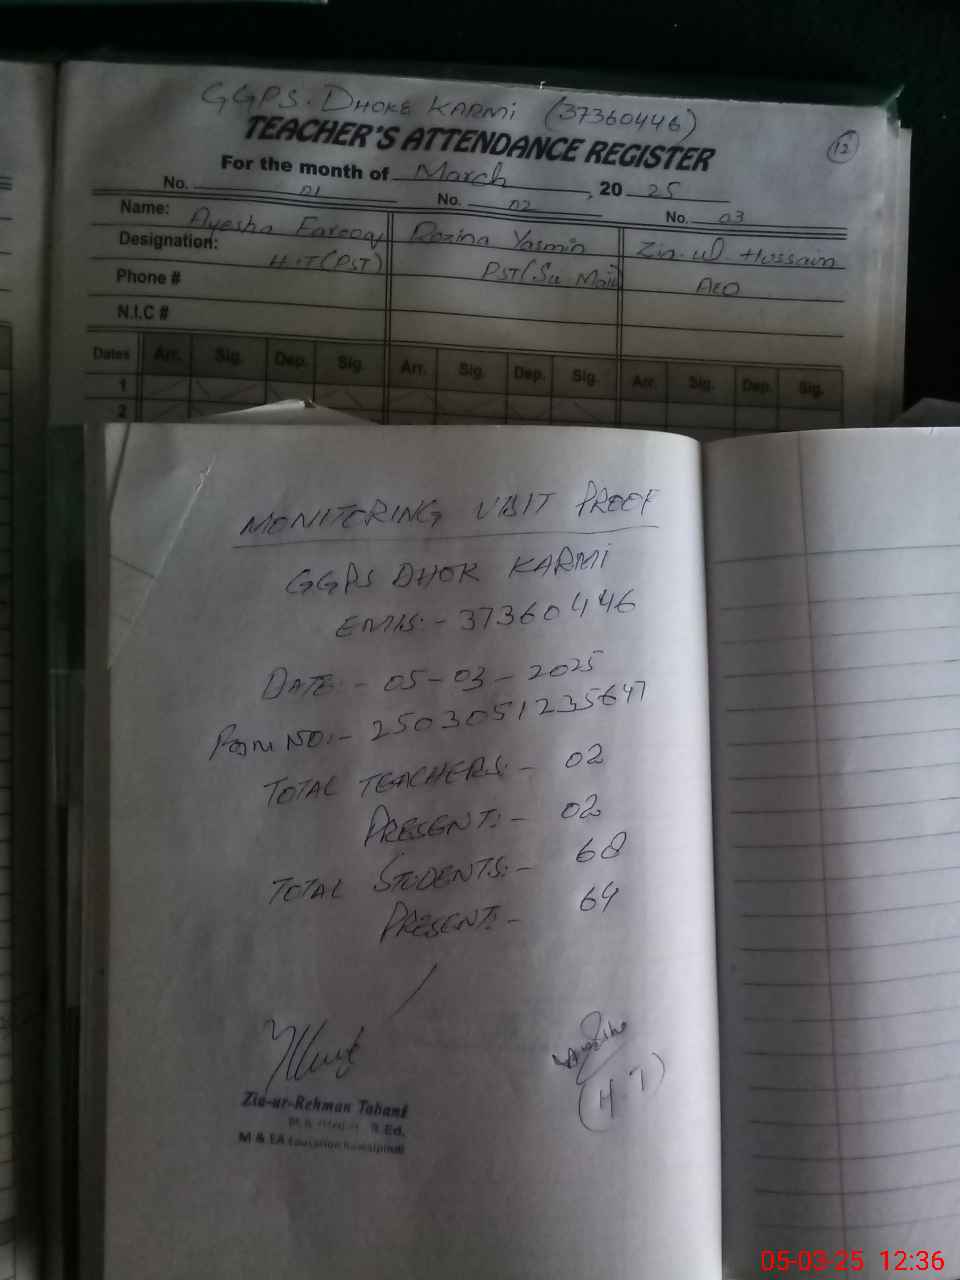 GGPS. DHOKE KARMI (37360446)
TEACHER'S ATTENDANCE REGISTER
12
For the month of March, 20 25
No. 01 No. 02 No. 03
Name: Ayesha Farooq Rozina Yasmin Zia-ul Hussain
Designation: H.T(PST) PST(Su Moil) AEO
Phone #
N.I.C #
Dates Arr. Sig. Dep. Sig. Arr. Sig. Dep. Sig. Arr. Sig. Dep. Sig.
1
2
MONITORING VISIT PROOF
GGPS DHOK KARMI
EMIS:- 37360446
DATE:- 05-03-2025
FORM NO:- 2503051235647
TOTAL TEACHERS:- 02
PRESENT:- 02
TOTAL STUDENTS:- 68
PRESENT:- 64
(H.T)
Zia-ur-Rehman Tabani
B.Ed.
M & EA Education Rawalpindi
05-03-25 12:36